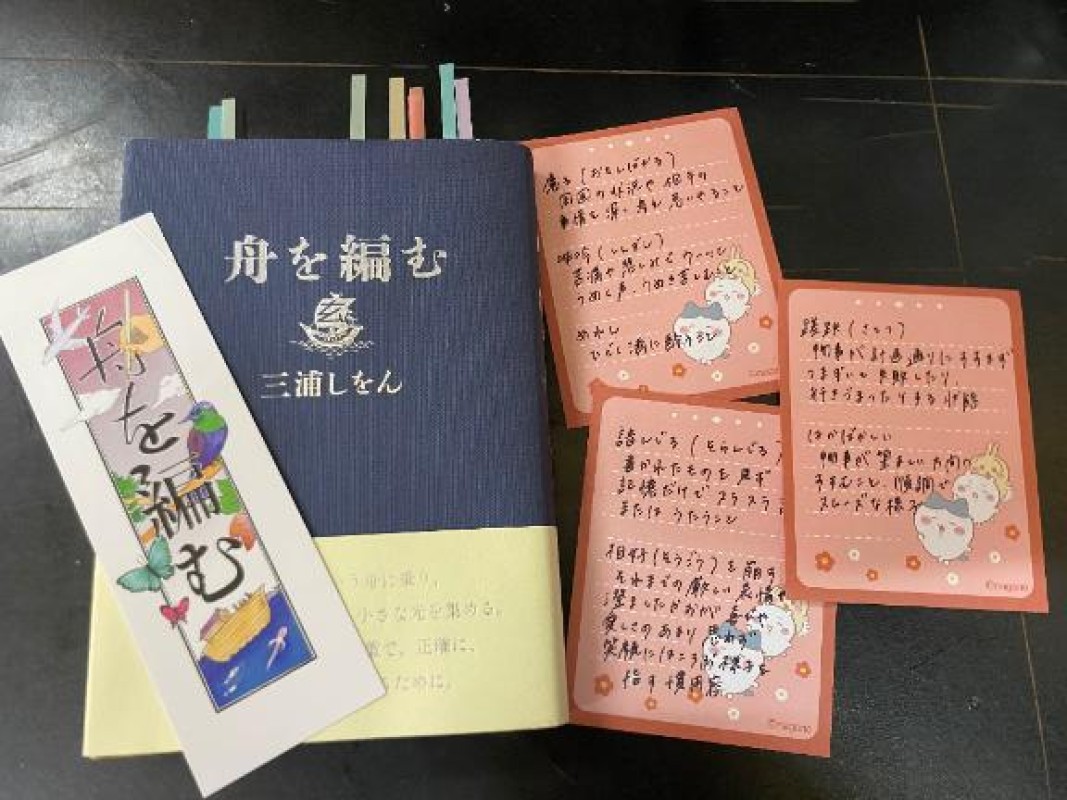 舟を編む
三浦しをん
う舟に乗り、
小さな光を集める。
で、正確に、
ために。
舟を編む
慮る(おもんぱかる)
周囲の状況や相手の
事情を深く考え思いやること
呻吟(しんぎん)
苦痛や悲しみでウーッと
うめく声、うめき苦しむこと
めれん
ひどく酒に酔うこと
諳んじる(そらんじる
書かれたものを見ず
記憶だけでスラスラ
またはうたうこと
相好(そうごう)を崩す
それまでの厳しい表情や
澄ましたかおが喜びや
楽しさのあまり思わず
笑顔にほころぶ様子を
指す慣用句
©nagano
蹉跌(さてつ)
物事が計画通りにすすまず
つまずいて失敗したり
行きづまったりする状態
はかばかしい
物事が望ましい方向に
すすむこと、順調で
スムーズな様子
©nagano